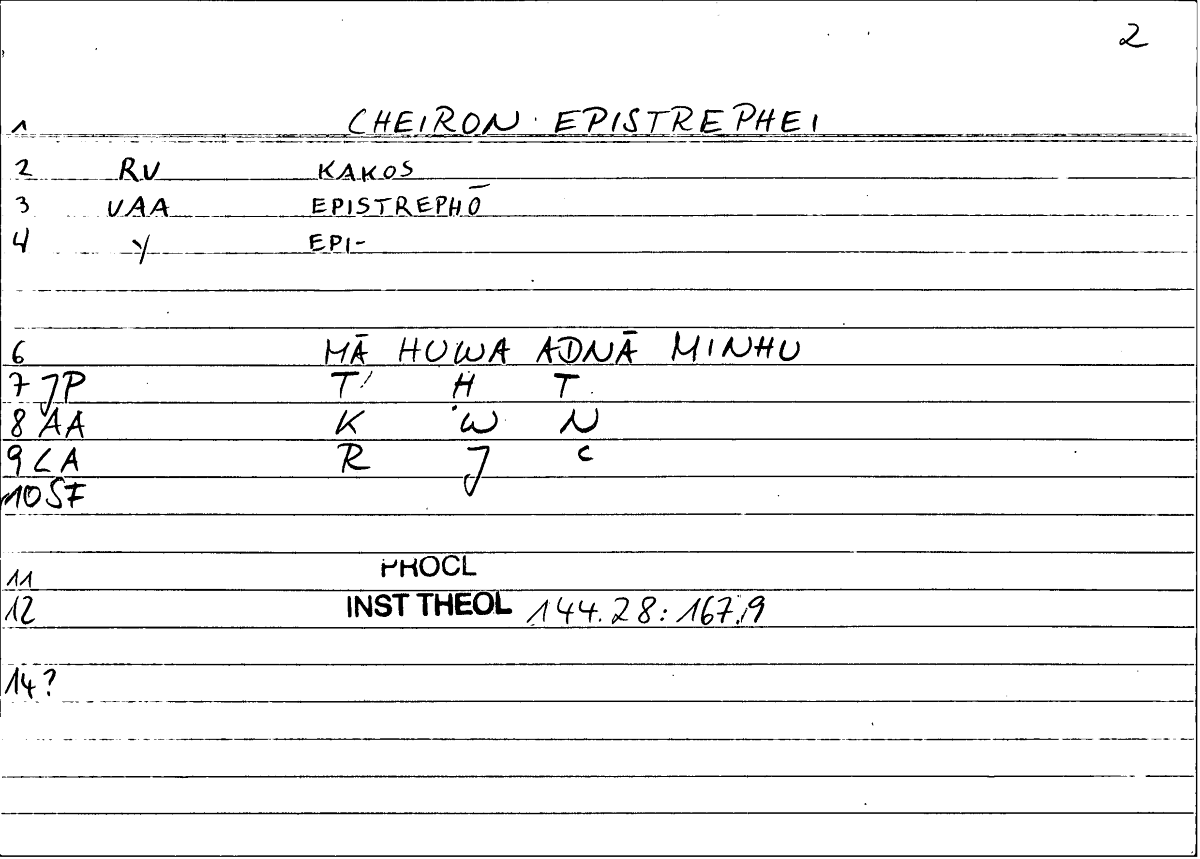 2
1 CHEIRON EPISTREPHEI
2 RV KAKOS
3 VAA EPISTREPHŌ
4 Y EPI-
6 MĀ HUWA ADNĀ MINHU
7 JP T H T
8 AA K W N
9 LA R J C
10 SF
11 PROCL
12 INST THEOL 144.28: 167.9
14?